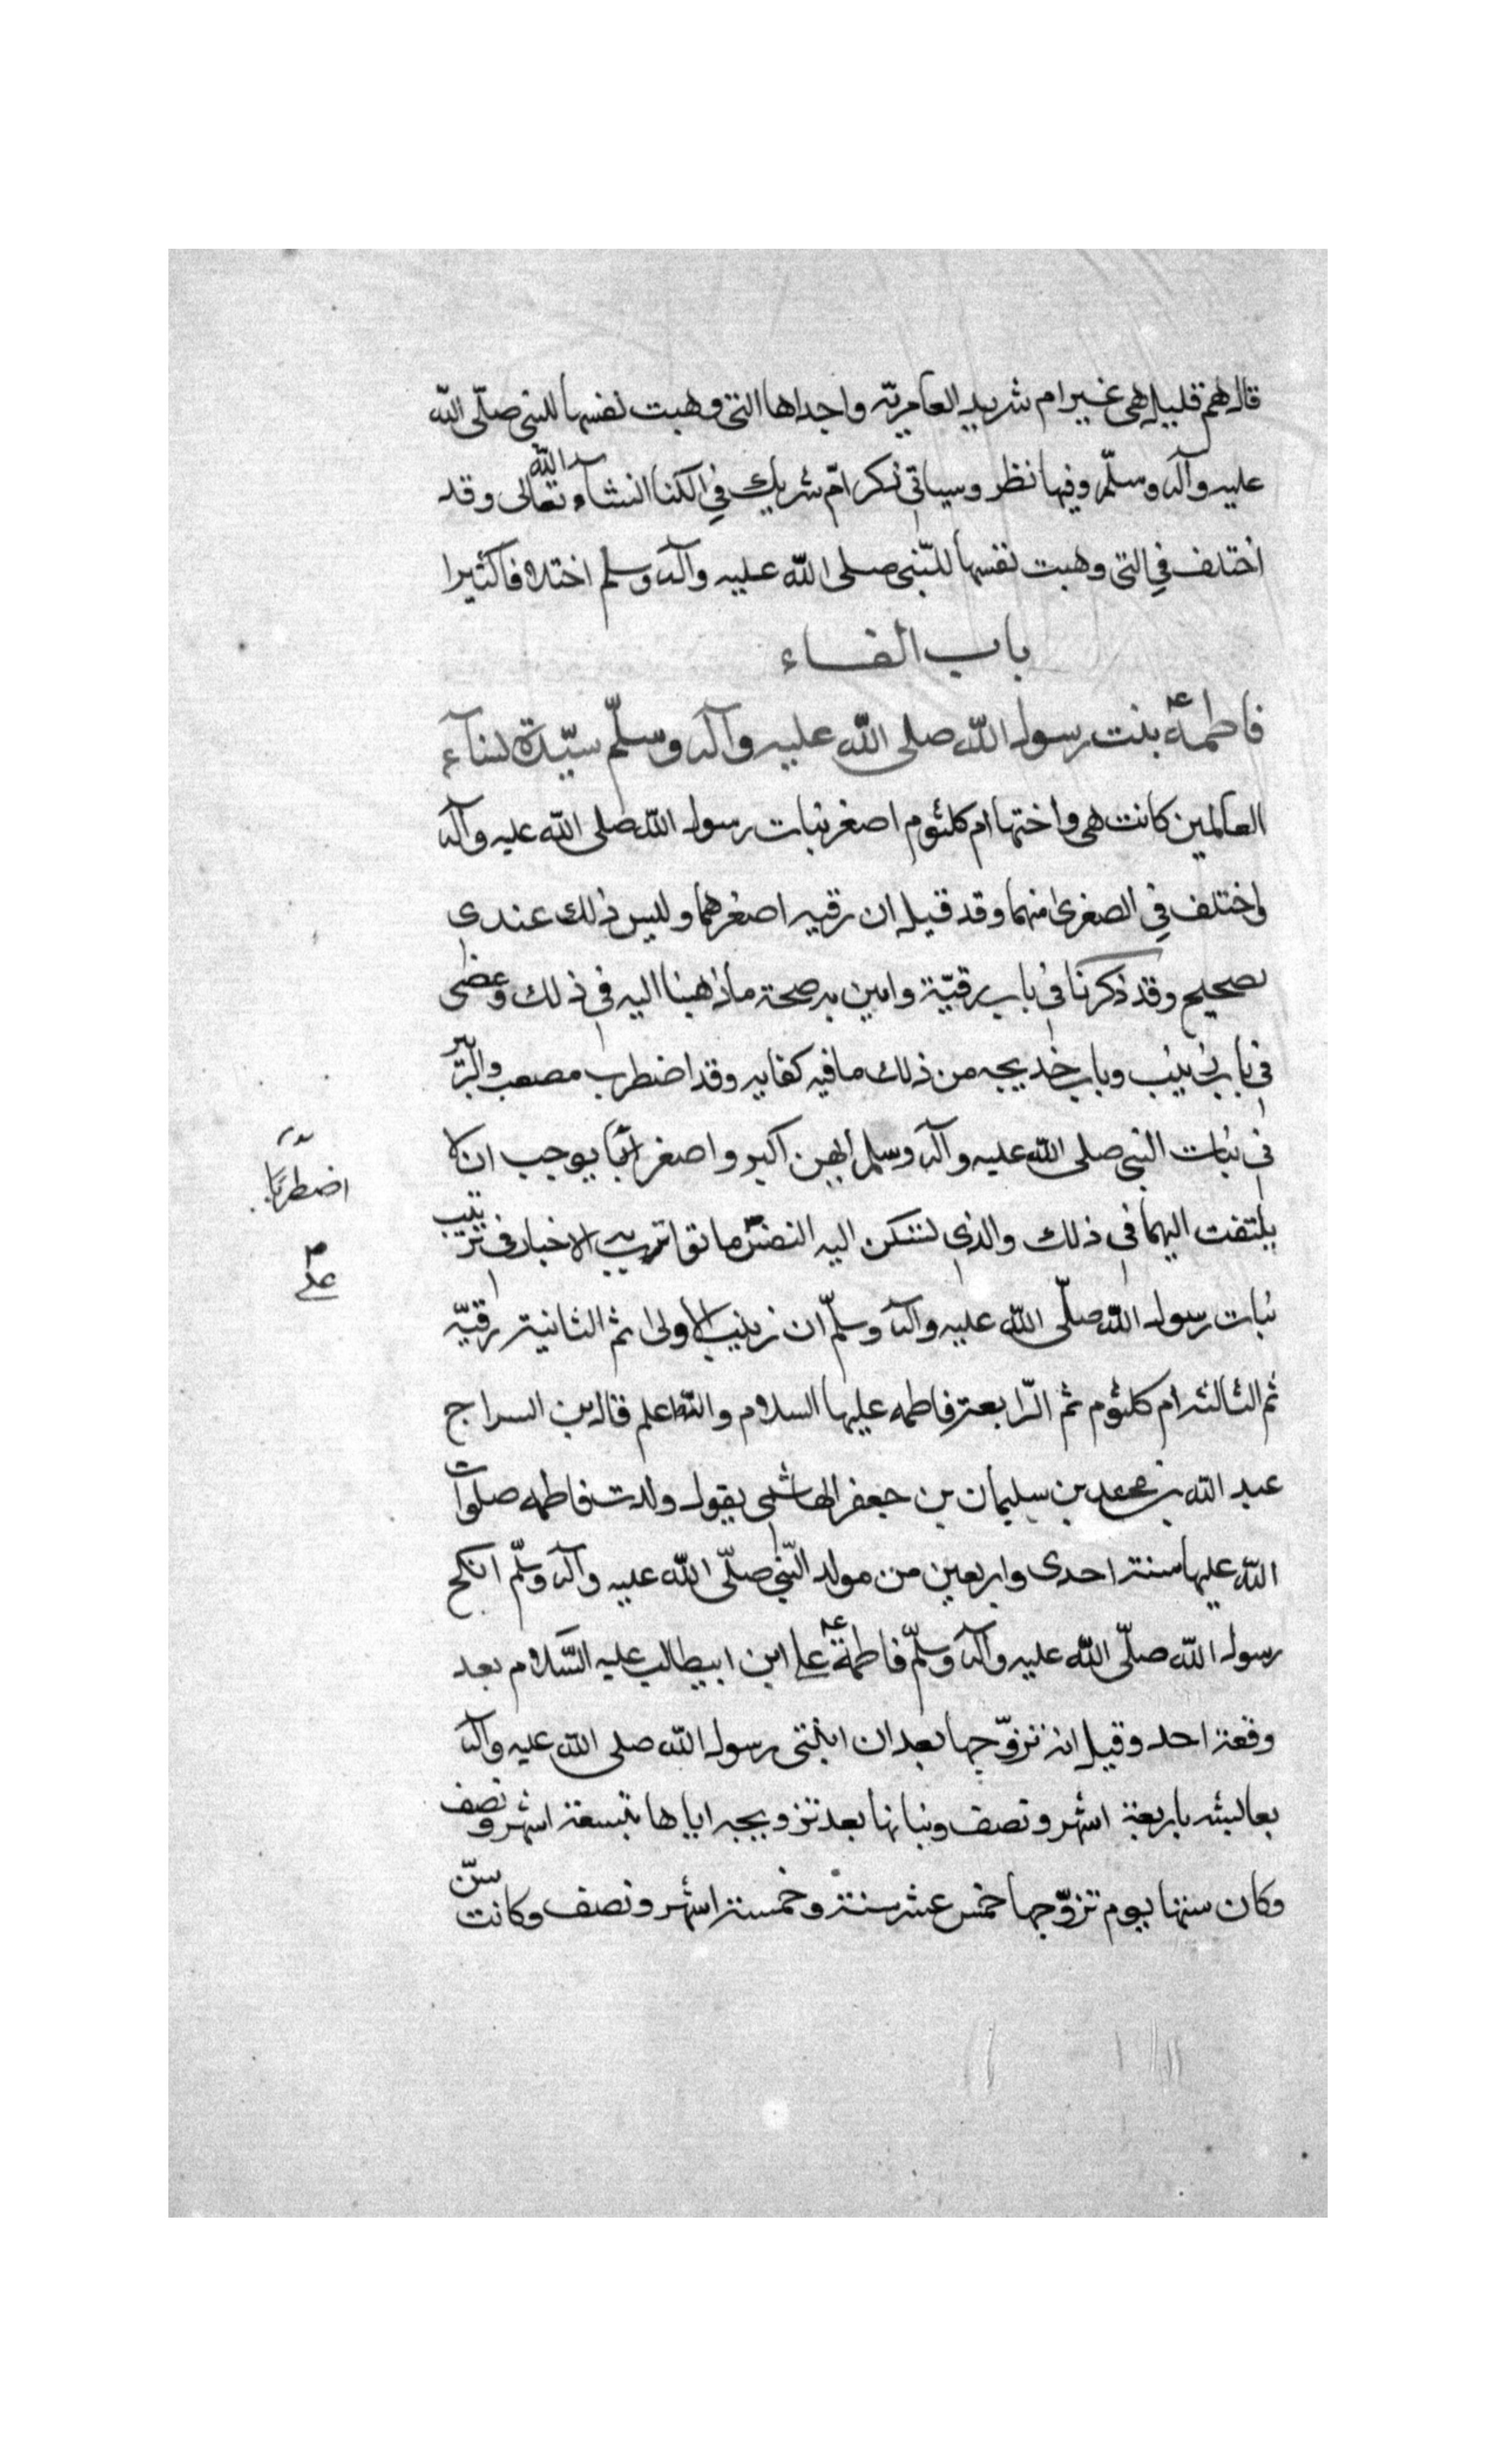 قال هم قليل هى غير ام شريك العامرية واحداها التى وهبت نفسها للنبى صلّى اللّه
عليه وآله وسلّم وفيها نظر وسياتى ذكر امّ شريك فى الكنا انشاء اللّه تعالى وقد
اختلف فى التى وهبت نفسها للنّبى صلى اللّه عليه وآله وسلم اختلافا كثيرا
باب الفاء
فاطمة ع بنت رسول اللّه صلى اللّه عليه وآله وسلّم سيّدة نساء
العالمين كانت هى واختها ام كلثوم اصغر بنات رسول اللّه صلى اللّه عليه وآله
واختلف فى الصغرى منهما وقد قيل ان رقيه اصغرهما وليس ذلك عندى
بصحيح وقد ذكرنا فى باب رقيّة وامين به صحة ما ذهبنا اليه فى ذلك وعضى
فى باب زينب وباب خديجه من ذلك ما فيه كفايه وقد اضطرب مصعب والزّبير
فى بنات النبى صلى اللّه عليه وآله وسلم ايهن اكبر واصغر يوجب ان لا
اضطرابا
يلتفت اليهما فى ذلك والذى لتسكن اليه النفس ما تواترت به الاخبار فى ترتيب
على
بنات رسول اللّه صلّى اللّه عليه وآله وسلّم ان زينب الاولى ثم الثانية رقيّه
ثم الثالثه ام كلثوم ثم الرّابعة فاطمه عليها السلام واللّه اعلم قال ابن السراج
عبد اللّه بن محمد بن سليمان بن جعفر الهاشمى يقول ولدت فاطمه صلوات
اللّه عليها سنة احدى واربعين من مولد النّبى صلّى اللّه عليه وآله وسلّم انكح
رسول اللّه صلّى اللّه عليه وآله وسلّم فاطمة ع على ابن ابيطالب عليه السّلام بعد
وقعة احد وقيل انه تزوّجها بعد ان ابتنى رسول اللّه صلى اللّه عليه وآله
بعايشه باربعة اشهر ونصف وبنا بها بعد تزويجه اياها بتسعة اشهر ونصف
وكان سنها يوم تزوّجها خمس عشر سنة وخمسة اشهر ونصف وكانت سنّ